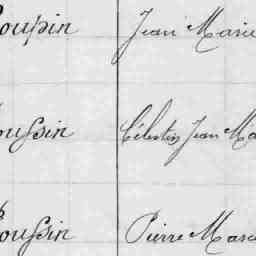 Poupin Jean Marie
Poussin Célestin Jean Ma
Poussin Pierre Marie